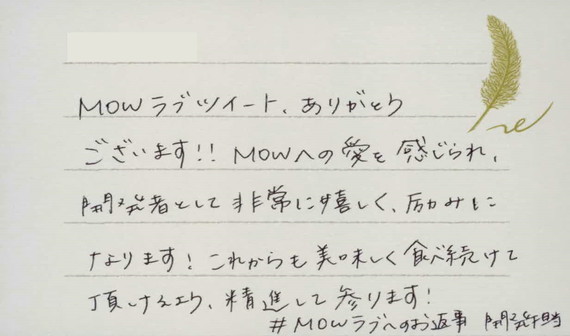 MOWラブツイート、ありがとう
ございます!! MOWへの愛を感じられ、
開発者として非常に嬉しく、励みに
なります! これからも美味しく食べ続けて
頂けるよう、精進して参ります!
#MOWラブへのお返事 開発担当